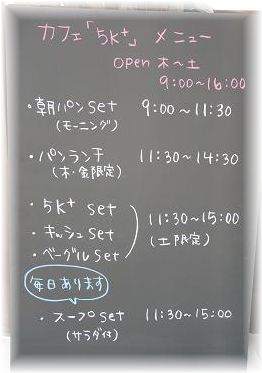 カフェ「5K+」メニュー
open 木〜土
9:00〜16:00
・朝パンset 9:00〜11:30
(モーニング)
・パンランチ 11:30〜14:30
(木・金限定)
・5K+ set
・キッシュset 11:30〜15:00
・ベーグルset (土限定)
毎日あります
・スープset 11:30〜15:00
(サラダ付)